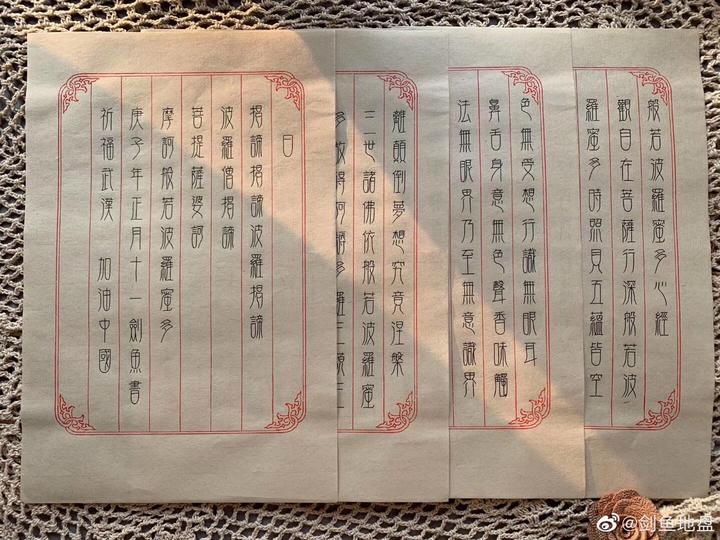 般若波羅蜜多心經
觀自在菩薩行深般若波
羅蜜多時照見五蘊皆空
色無受想行識無眼耳
鼻舌身意無色聲香味觸
法無眼界乃至無意識界
離顛倒夢想究竟涅槃
三世諸佛依般若波羅蜜
多故得阿耨多羅三藐三
曰
揭諦揭諦波羅揭諦
波羅僧揭諦
菩提薩婆訶
摩訶般若波羅蜜多
庚子年正月十一劍魚書
祈福武漢 加油中國
@剑鱼地盘